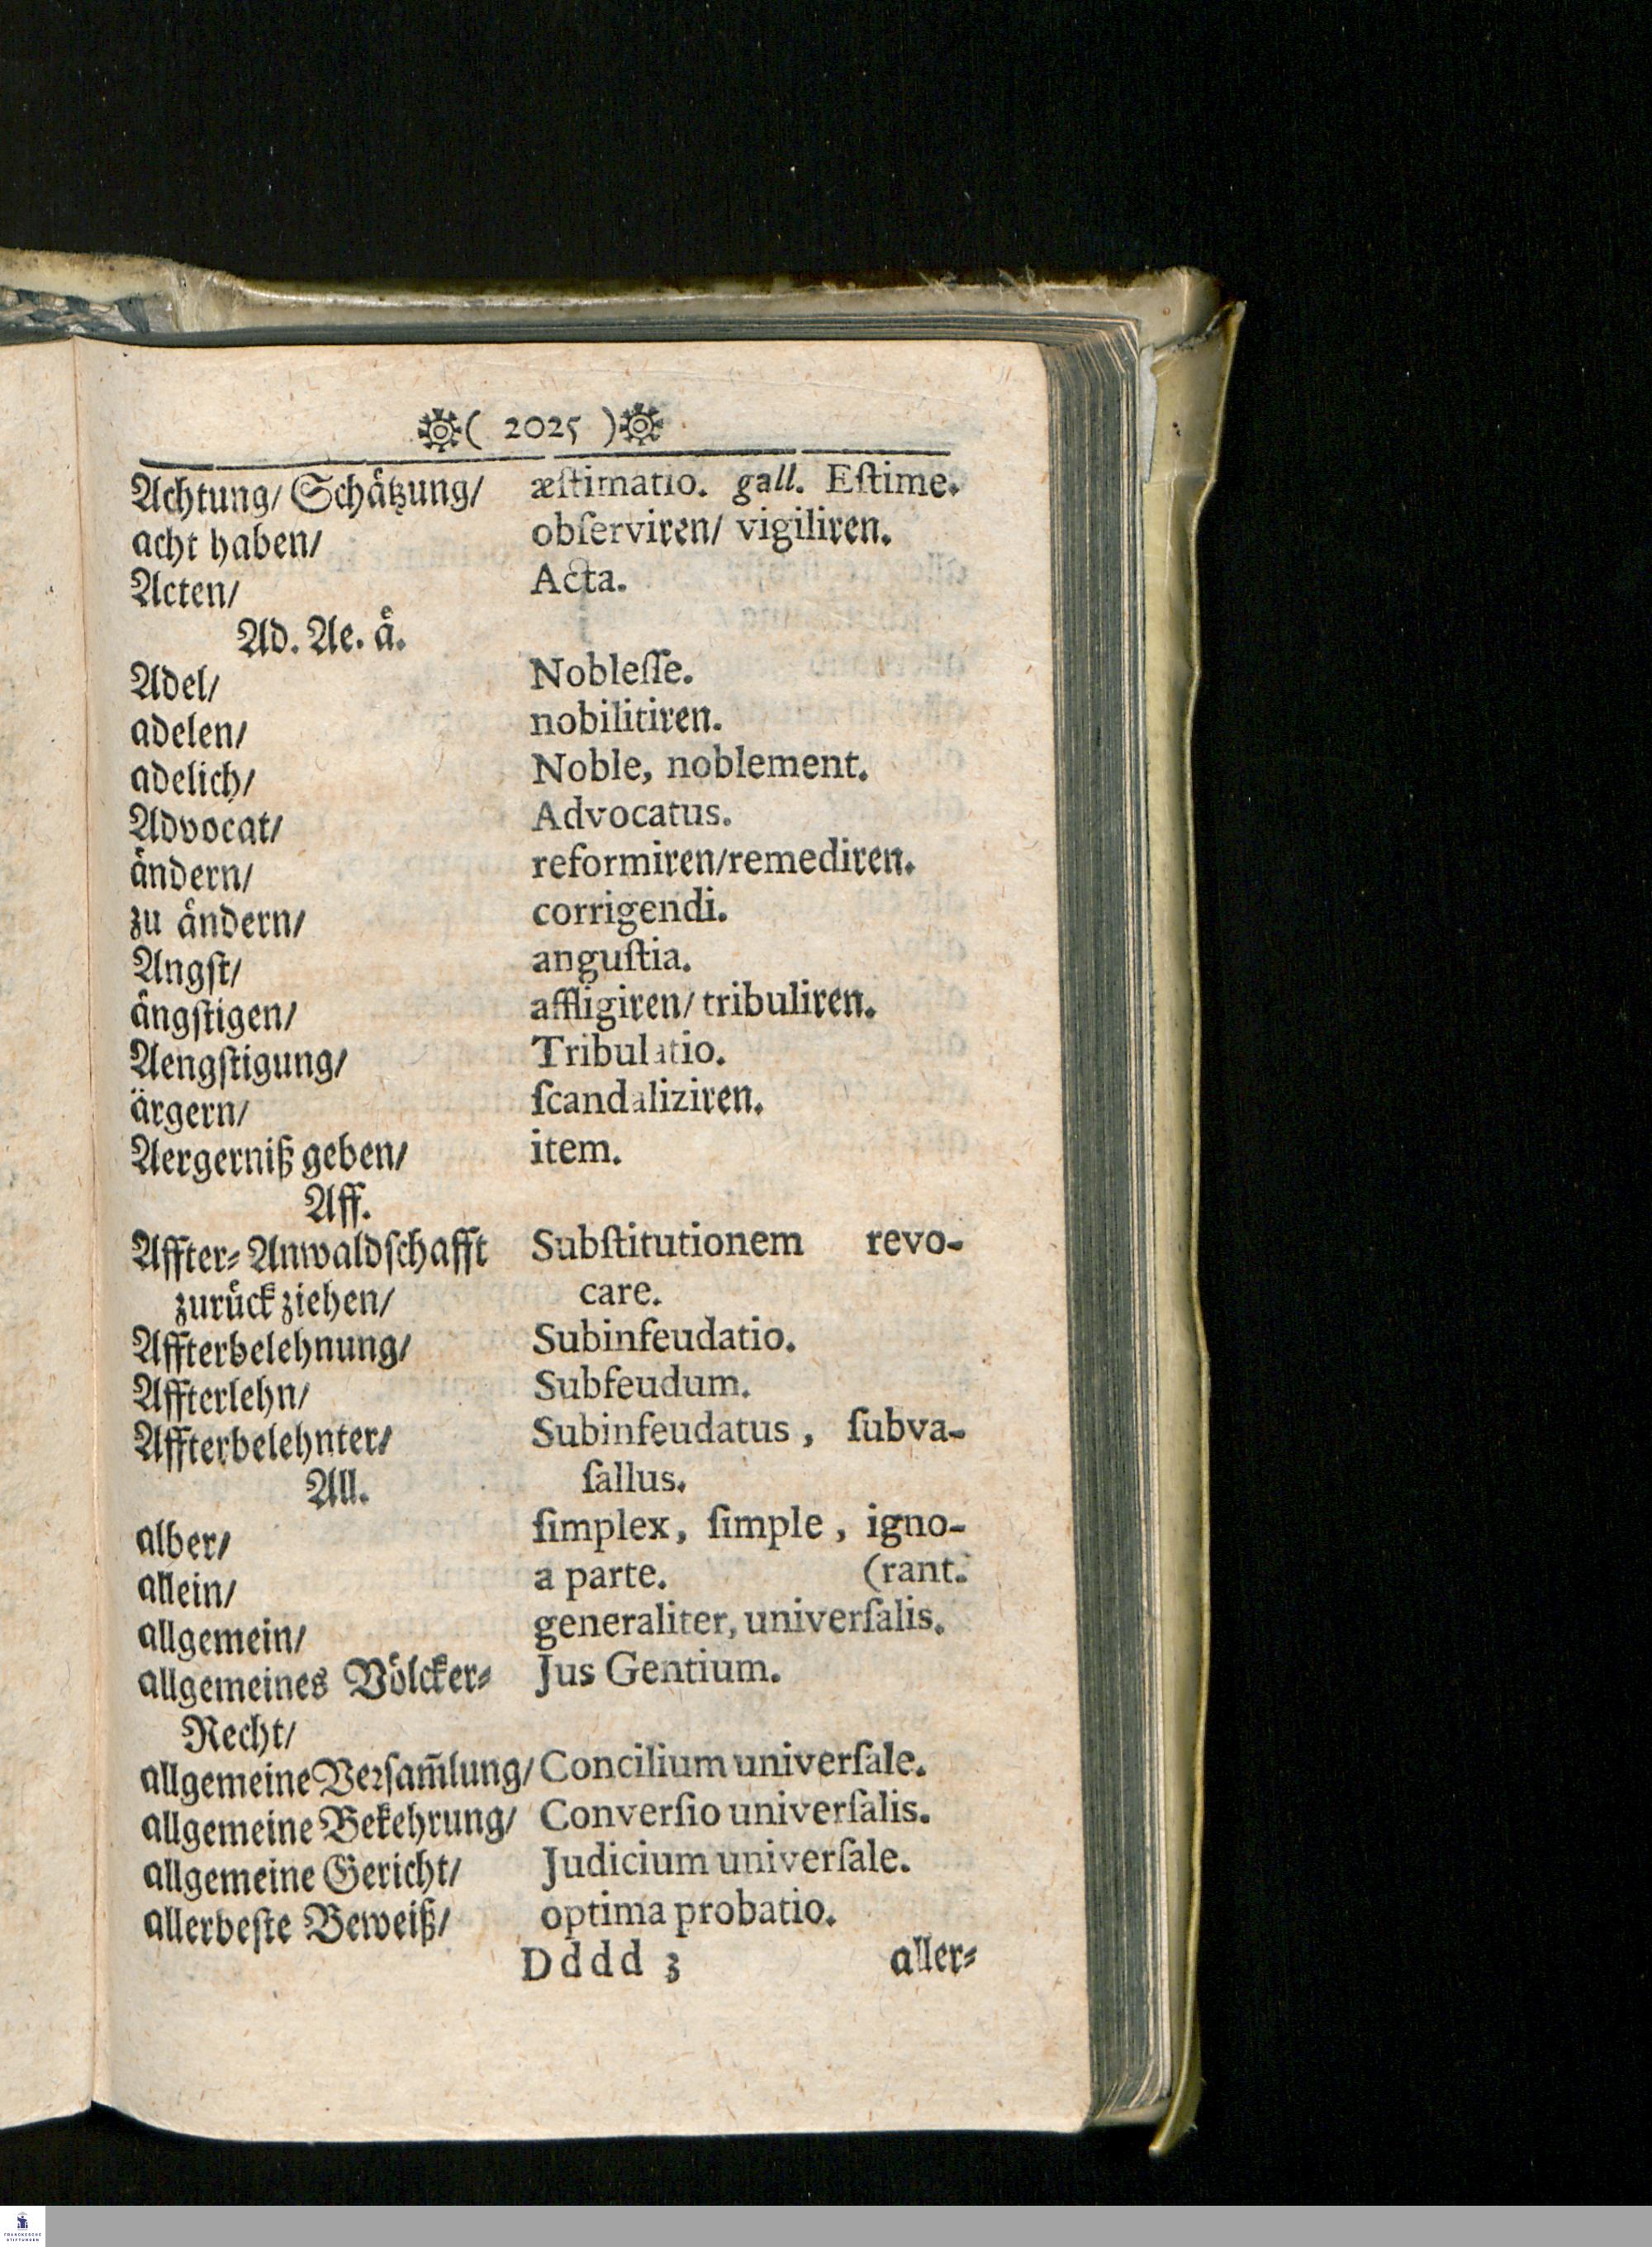 ( 2025 )
Achtung/ Schaͤtzung/ æſtimatio. gall. Eſtime.
acht haben/ obſerviren/ vigiliren.
Acten/ Acta.
Ad. Ae. aͤ.
Adel/ Nobleſſe.
adelen/ nobilitiren.
adelich/ Noble, noblement.
Advocat/ Advocatus.
aͤndern/ reformiren/remediren.
zu aͤndern/ corrigendi.
Angſt/ anguſtia.
aͤngſtigen/ affligiren/ tribuliren.
Aengſtigung/ Tribulatio.
ärgern/ ſcandaliziren.
Aergerniß geben/ item.
Aff.
Affter⸗Anwaldſchafft Subſtitutionem revo-
zuruͤck ziehen/ care.
Affterbelehnung/ Subinfeudatio.
Affterlehn/ Subfeudum.
Affterbelehnter/ Subinfeudatus, ſubva-
All. ſallus.
alber/ ſimplex, ſimple, igno-
allein/ a parte. (rant.
allgemein/ generaliter, univerſalis.
allgemeines Voͤlcker⸗ Jus Gentium.
Recht/
allgemeine Verſam̃lung/ Concilium univerſale.
allgemeine Bekehrung/ Converſio univerſalis.
allgemeine Gericht/ Judicium univerſale.
allerbeſte Beweiß/ optima probatio.
Dddd 3 aller⸗
FRANCKESCHE
STIFTUNGEN